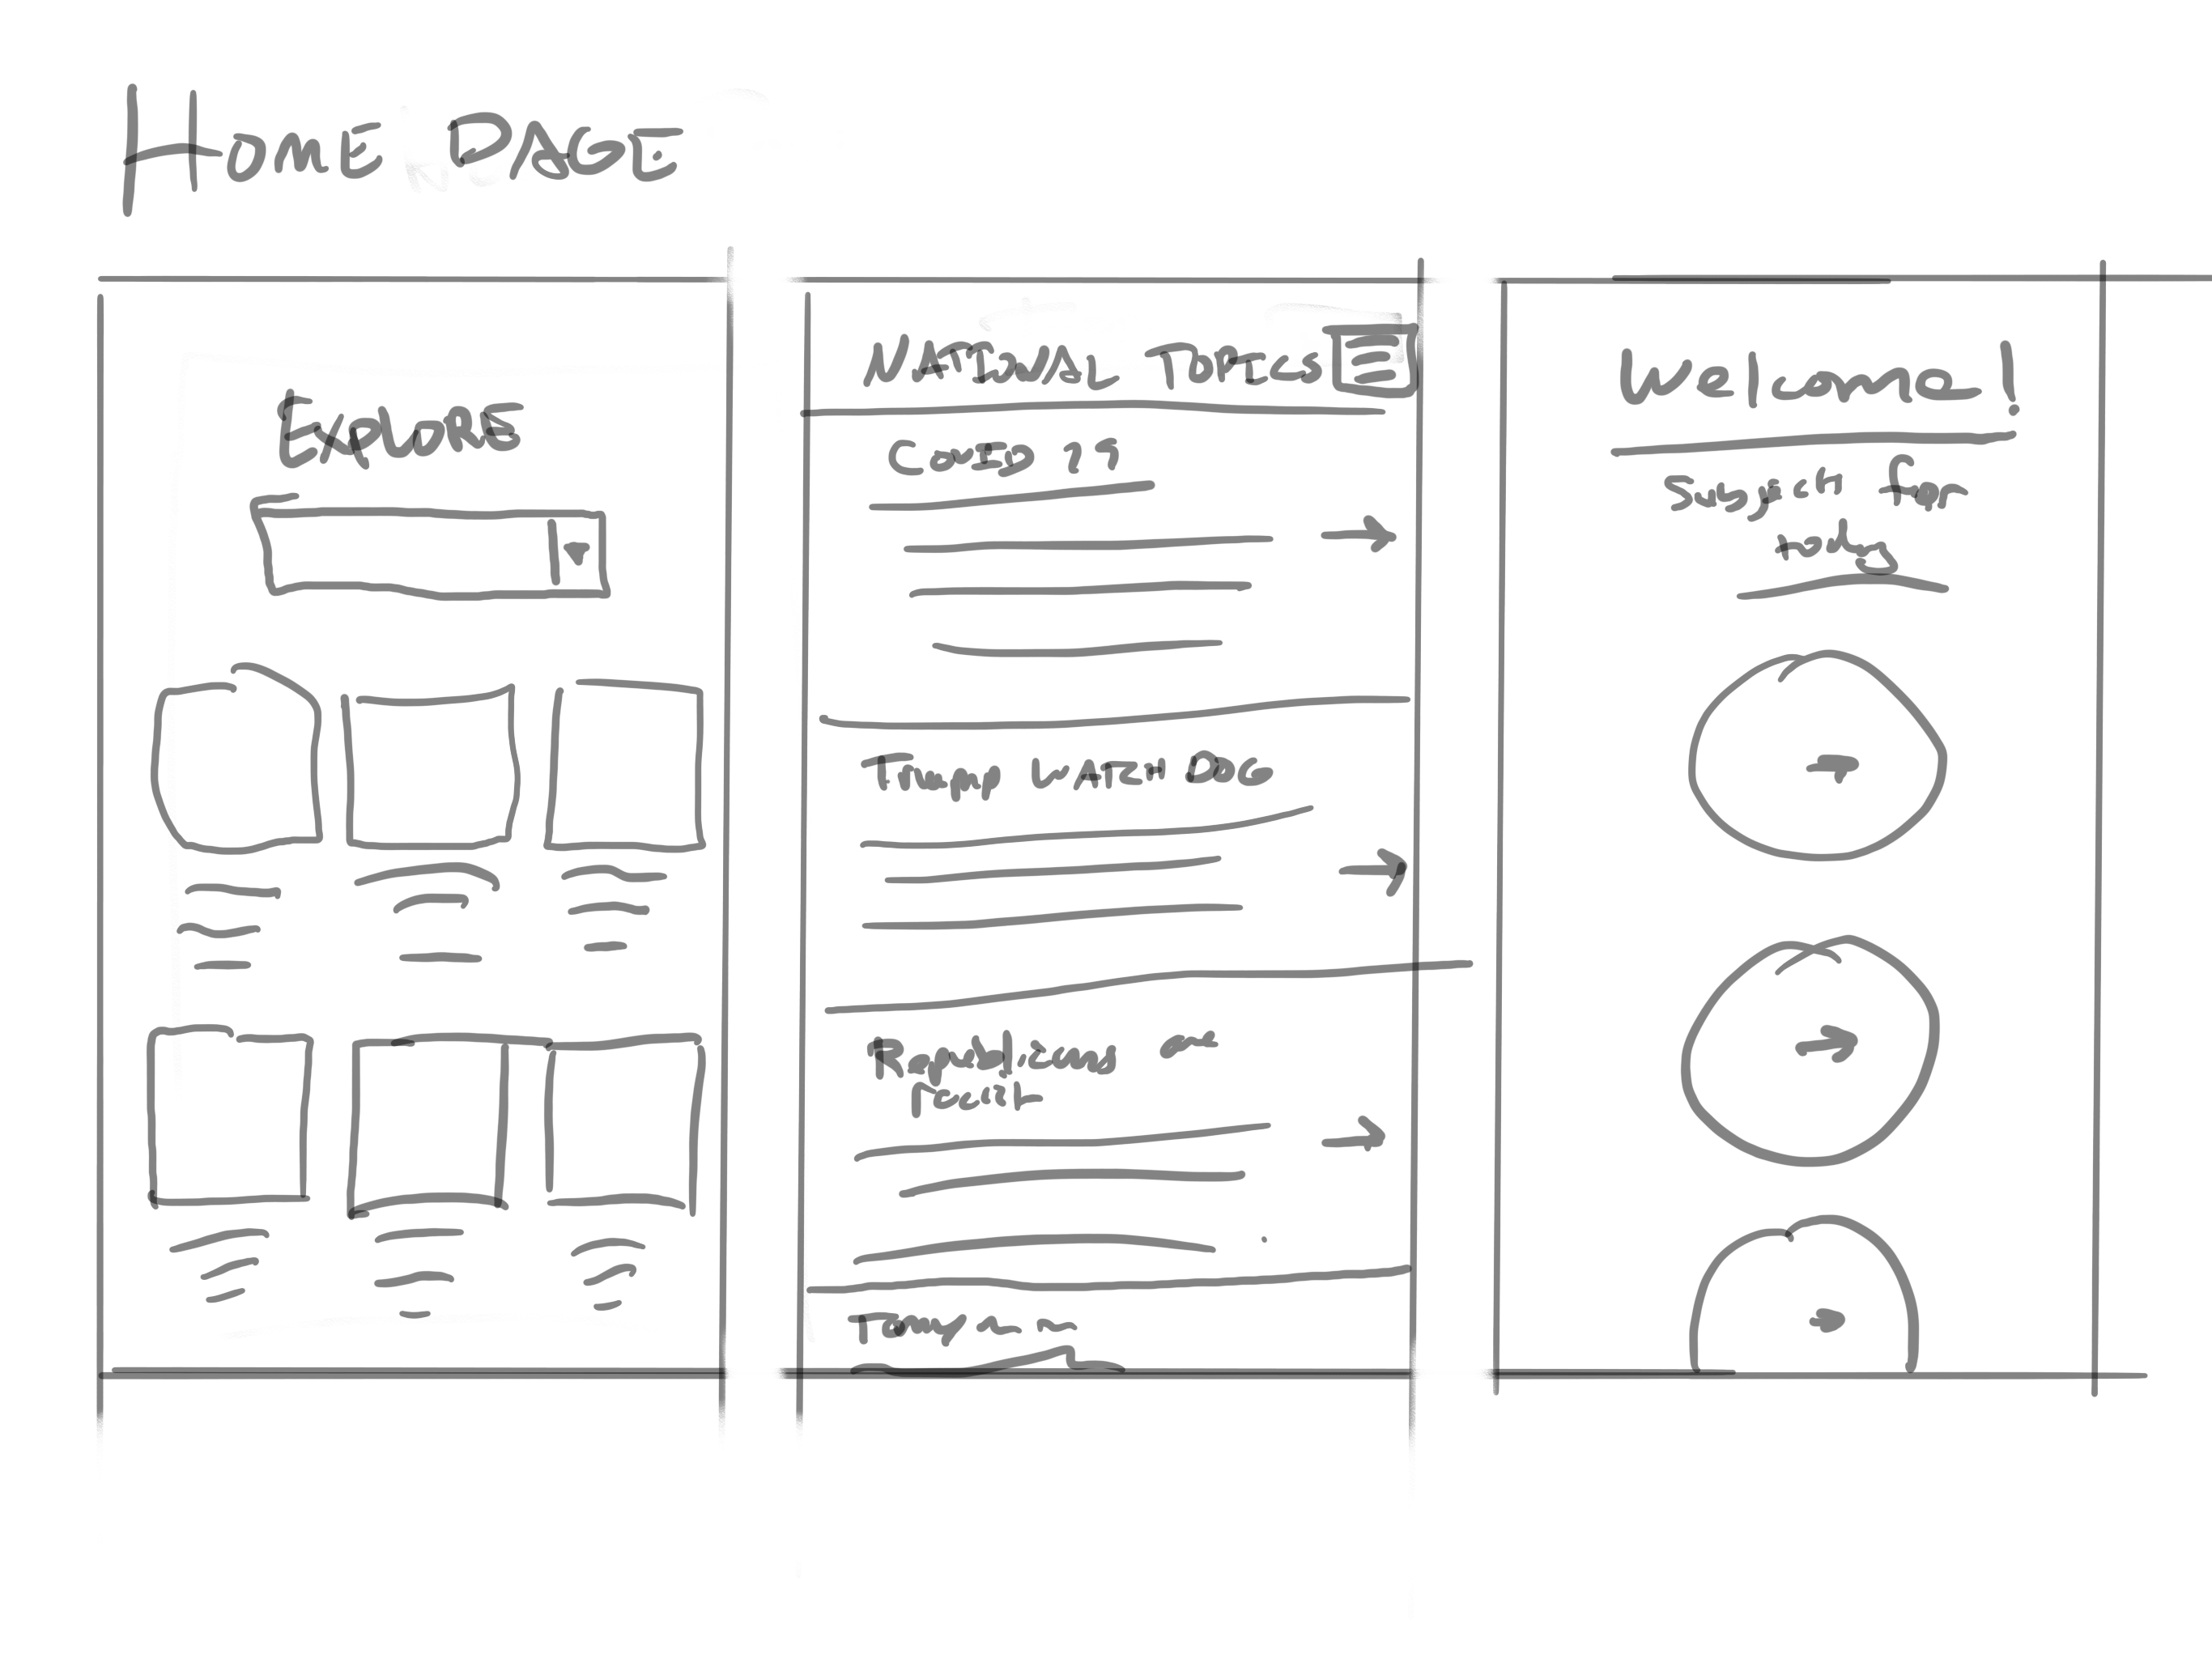 HOME PAGE
EXPLORE
NATIONAL TOPICS
COVID 19
Trump WATCH DOG
Republicans are
racist
Welcome!
Subjects for
today